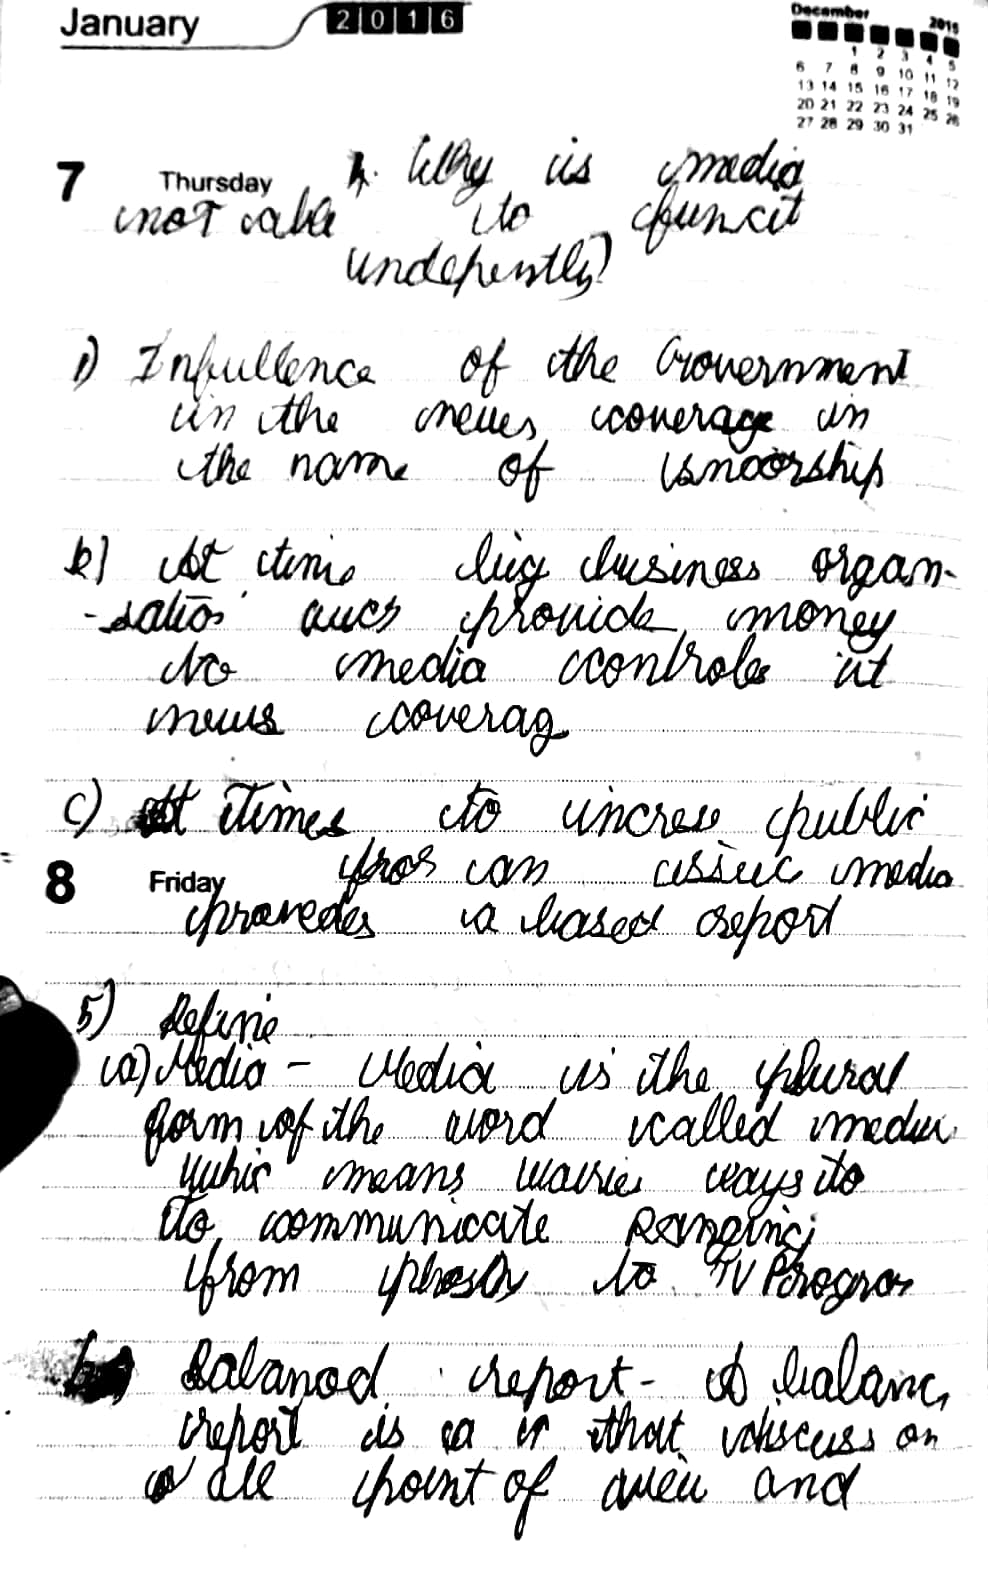 January 2016
December 2015
1 2 3 4 5
6 7 8 9 10 11 12
13 14 15 16 17 18 19
20 21 22 23 24 25 26
27 28 29 30 31
7 Thursday 4. Why is media
not able to funcit
indepently?
1) Infullence of the Government
in the news coverage in
the name of
b) At time big business organ-
-satio provide money
to media controls it
news coverag
c) At times to increse public
can issue media
8 Friday
provedes a based report
5) Define
(a) Media - Media is the plural
form of the word called mediu
whic means ways to
to communicate Ranging
from to TV Progra
b) Balanod report - A balanc
report is a that discuss on
all point of and